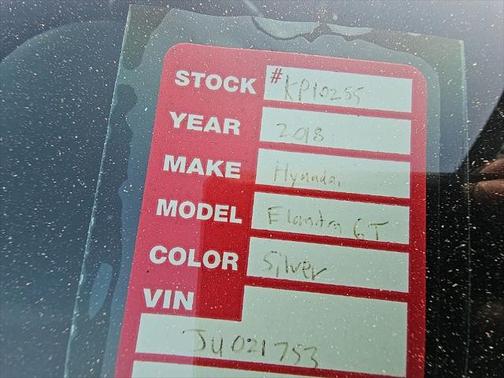 STOCK #KP10255
YEAR 2018
MAKE Hyundai
MODEL Elantra GT
COLOR Silver
VIN
JU021753